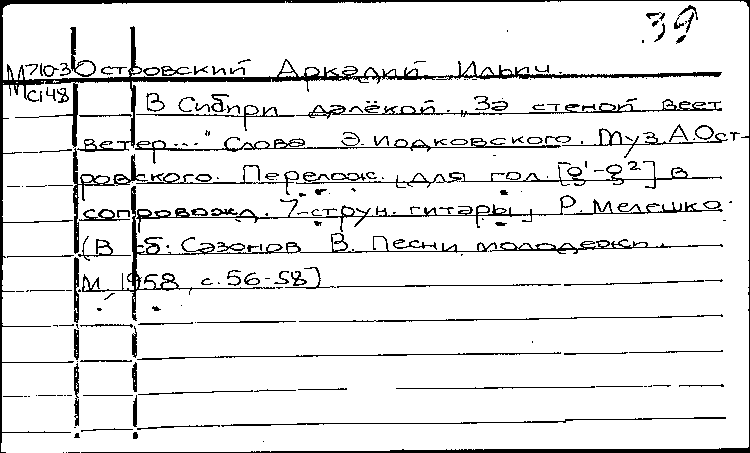 39
М710-3 Островский Аркадий Ильич.
С148
В Сибири далёкой. „За стеной веет
ветер..." Слова Э. Иодковского. Муз. А. Ост-
ровского. Перелож. [для гол. [g¹-g²] в
сопровожд. 7-струн. гитары] Р. Мелешко.
(В сб. Сазонов В. Песни молодежи.
М., 1958, с. 56-58)